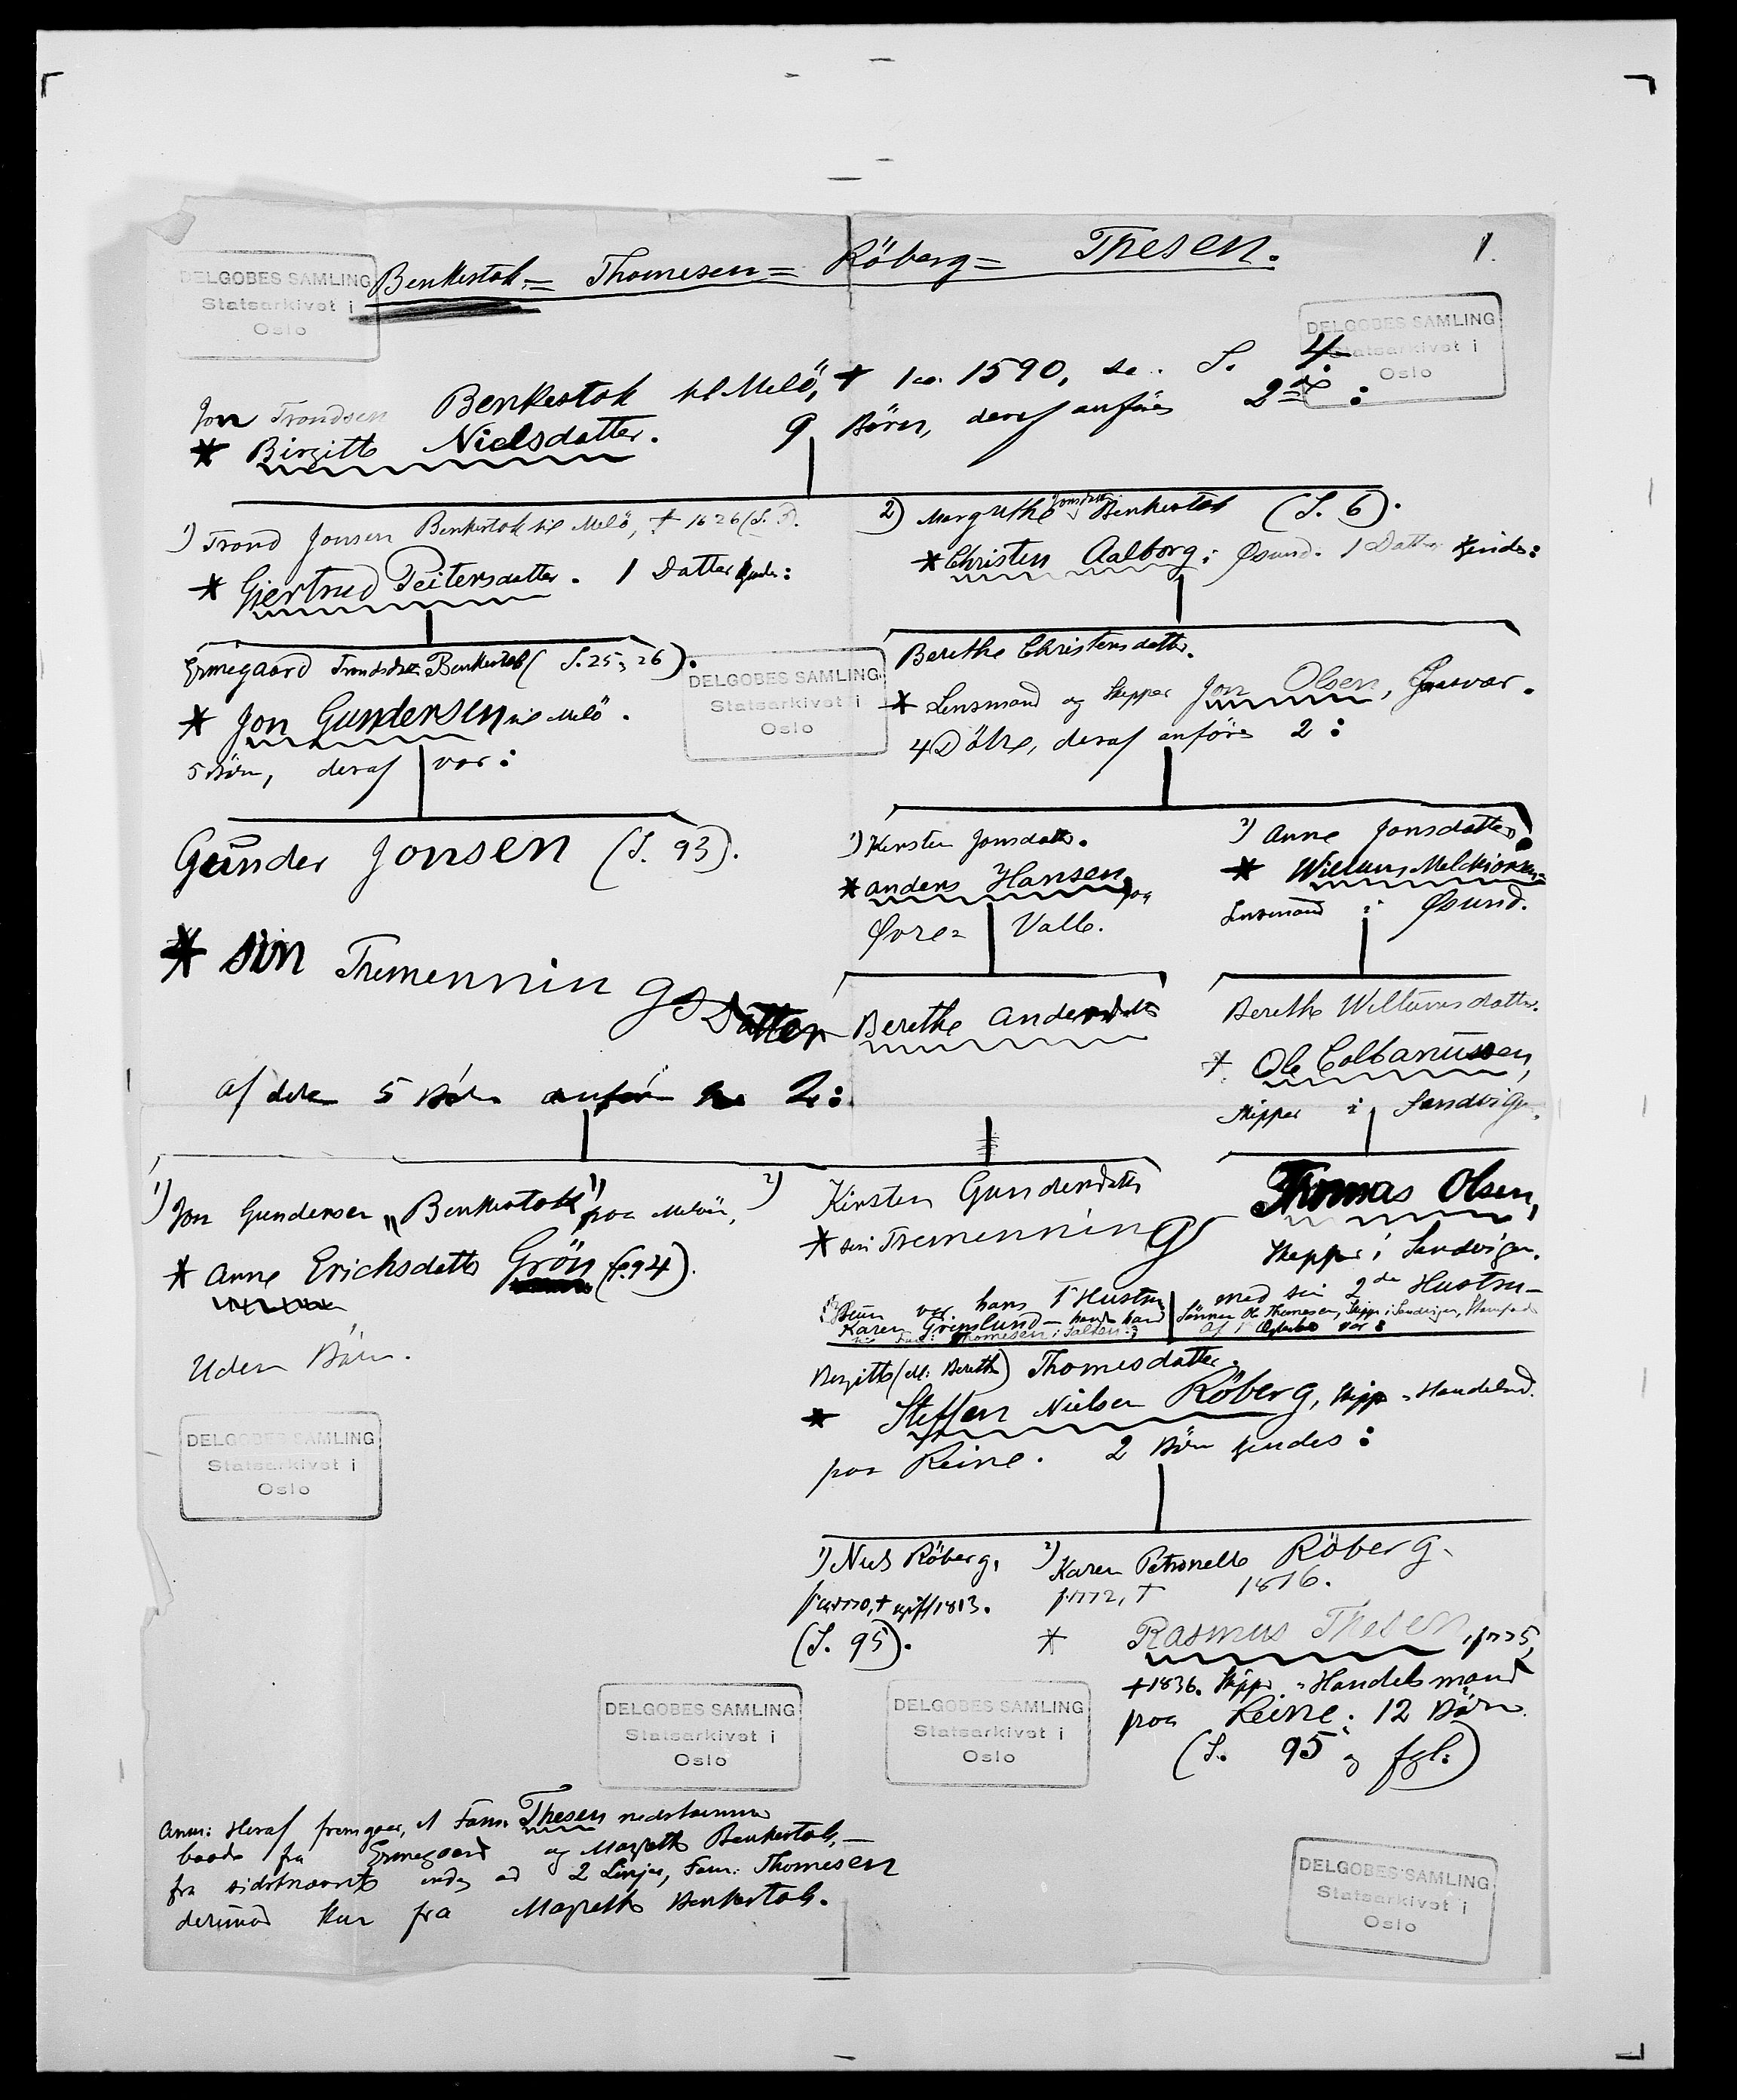 Benkestok = Thomesen = Röberg = Thesen. 1.
DELGOBES SAMLING
Statsarkivet i
Oslo
DELGOBES SAMLING
Statsarkivet i
Oslo
Jon Trondsen Benkestok til Melö, † ca. 1590, se. S. 4.
* Birgitte Nielsdatter. 9 Börn, deraf anföres 2de :
1) Trond Jonsen Benkestok til Melö, † 1626 (S. 5).
* Giertrud Peitersdatter. 1 Datter kjendes:
2) Margrethe Jonsdatter Benkestok (S. 6).
* Christen Aalborg i Øsund. 1 Datter kjendes:
Ermegaard Trondsdtr Benkestok (S. 25, 26).
* Jon Gundersen til Melö.
5 Börn, deraf var:
DELGOBES SAMLING
Statsarkivet i
Oslo
Berethe Christensdatter.
* Lensmand og Skipper Jon Olsen, Gaasvær.
4 Dötre, deraf anföres 2:
Gunder Jonsen (S. 93).
1) Kirsten Jonsdatter.
* Anders Hansen paa
Øvre= Valle.
2) Anne Jonsdatter
* Willum Melchiorsen
Lensmand i Øsund.
* sin Tremenningsdatter Berethe Andersdatter
Berethe Willumsdatter.
* Ole Colbanussen,
Skipper i Sandvigen.
af dere 5 Börn anföres 2:
1) Jon Gundersen "Benkestok" paa Melöe,
* Anne Erichsdatter Grön (S. 94).
Uden Börn.
2) Kirsten Gundersdatter
* sin Tremenning Thomas Olsen,
Skipper i Sandvigen.
Hun var hans 1 Hustru med sin 2de Hustru –
Karen Grönslund – havde han Sönnen Ole Thomesen, Skipper i Sandvigen, Stamfader
Fam: Thomesen i Salten. Af 1 Ægteskab var:
Birgitte (el: Berethe) Thomesdatter.
* Steffen Nielsen Röberg, Skipper Handelsmd.
paa Reine. 2 Börn kjendes:
DELGOBES SAMLING
Statsarkivet i
Oslo
1) Niels Röberg,
f. ca 1770, † 1813.
(S. 95).
2) Karen Petronelle Röberg.
f. 1772, † 1816.
* Rasmus Thesen, f. 1775,
† 1836. Skipper Handelsmand
paa Reine. 12 Börn.
(S. 95 og fgl.)
DELGOBES SAMLING
Statsarkivet i
Oslo
DELGOBES SAMLING
Statsarkivet i
Oslo
Anm: Heraf fremgaar, at Fam. Thesen nedstammer
baade fra Ermegaard og Margrethe Benkestok, –
fra sidstnævnte endog ad 2 Linjer, Fam: Thomesen
derimod kun fra Margrethe Benkestok.
DELGOBES SAMLING
Statsarkivet i
Oslo